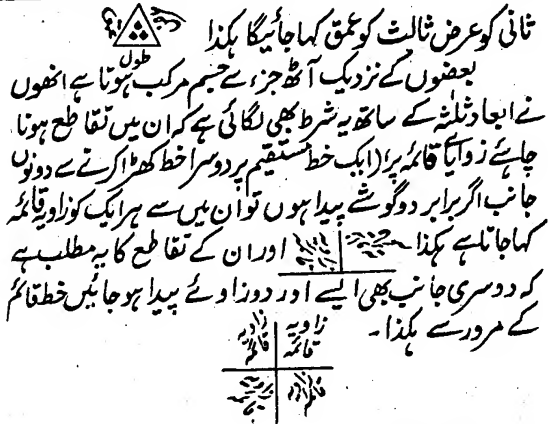 ثانی کو عرض ثالث کو عمق کہا جائیگا ہکذا
طول
بعضوں کے نزدیک آٹھ جزء سے جسم مرکب ہوتا ہے انھوں
نے ابعاد ثلٰثہ کے ساتھ یہ شرط بھی لگائی ہے کہ ان میں تقاطع ہونا
چاہئے زوایائے قائمہ پر (ایک خط مستقیم پر دوسرا خط کھڑا کرنے سے دونوں
جانب اگر برابر دو گوشے پیدا ہوں تو ان میں سے ہر ایک کو زاویہ قائمہ
کہا جاتا ہے ہکذا۔ اور ان کے تقاطع کا یہ مطلب ہے
کہ دوسری جانب بھی ایسے اور دو زاوئے پیدا ہو جائیں خط قائم
کے مرور سے ہکذا۔
زاویہ قائمہ زاویہ قائمہ